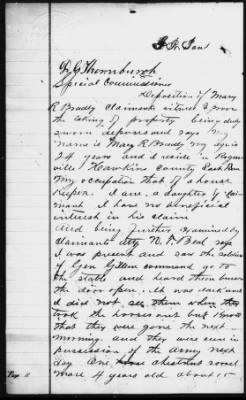 J. G. Thornburgh
Special Commissioner
Deposition of Mary
R Bradly Claimants witness to prove
the taking of property being duly
sworn deposes and says My
name is Mary R Bradly my age is
24 years and I reside in Rogers
ville Hawkins County East Tenn
My occupation that of a house
keeper. I am a daughter of claim
ant. I have no beneficial
interest in his claim
And being further examined by
claimants atty
I was present and saw the soldiers
of Gen Gillem command go to
the stable and heard them burst
the door open. It was dark and
I did not see them when they
took the horses out but know
that they were gone the next
morning. and they were seen in
possession of the army next
day One chestnut sorrel
mare 4 years old about 15
Page